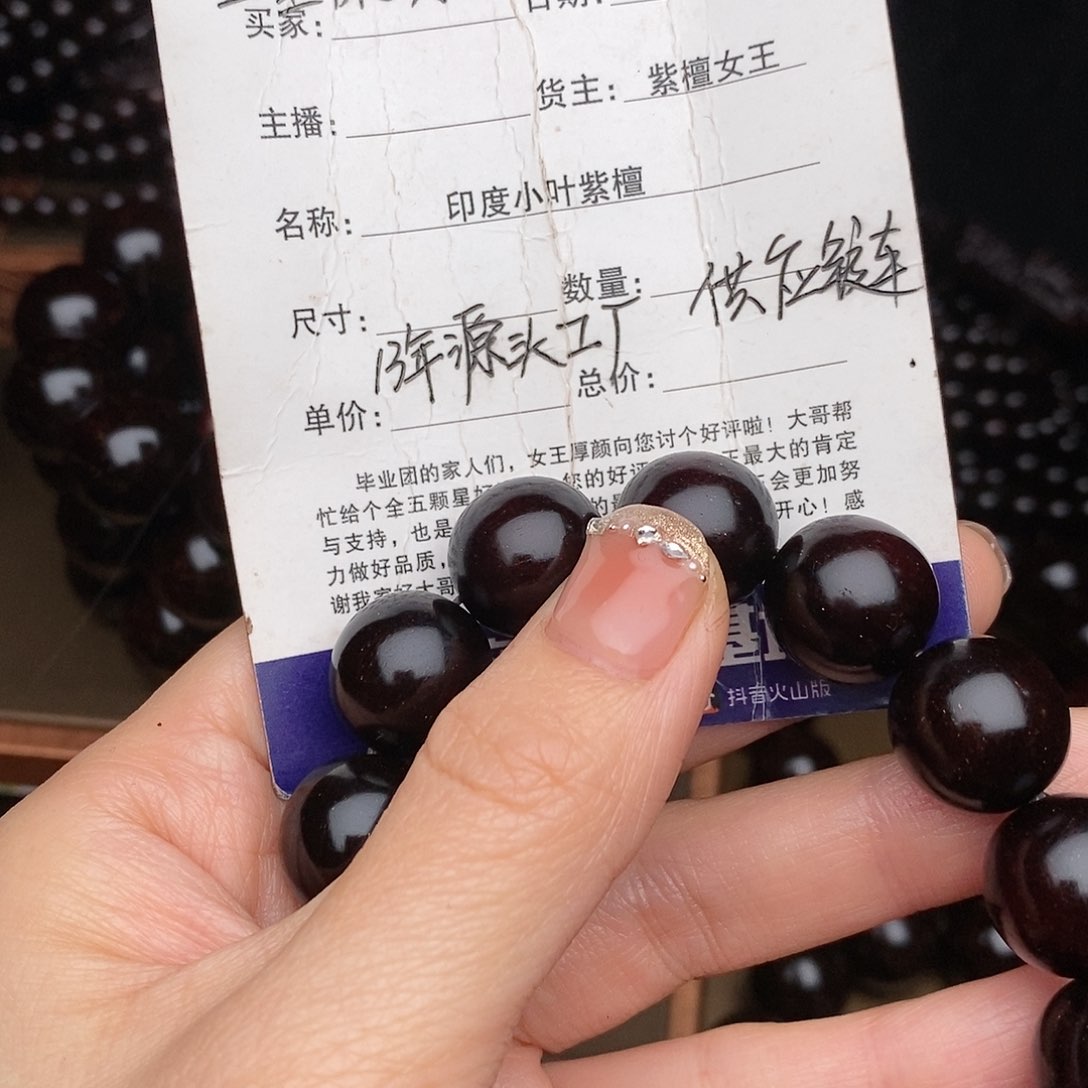 买家：
日期：
主播：
货主： 紫檀女王
名称： 印度小叶紫檀
尺寸：
数量：
供应链车
13年源头工厂
单价：
总价：
毕业团的家人们，女王厚颜向您讨个好评啦！大哥帮
忙给个全五颗星好 您的好评 王最大的肯定
与支持，也是 的 会更加努
力做好品质， 开心！感
谢我家好大哥
基地
抖音火山版